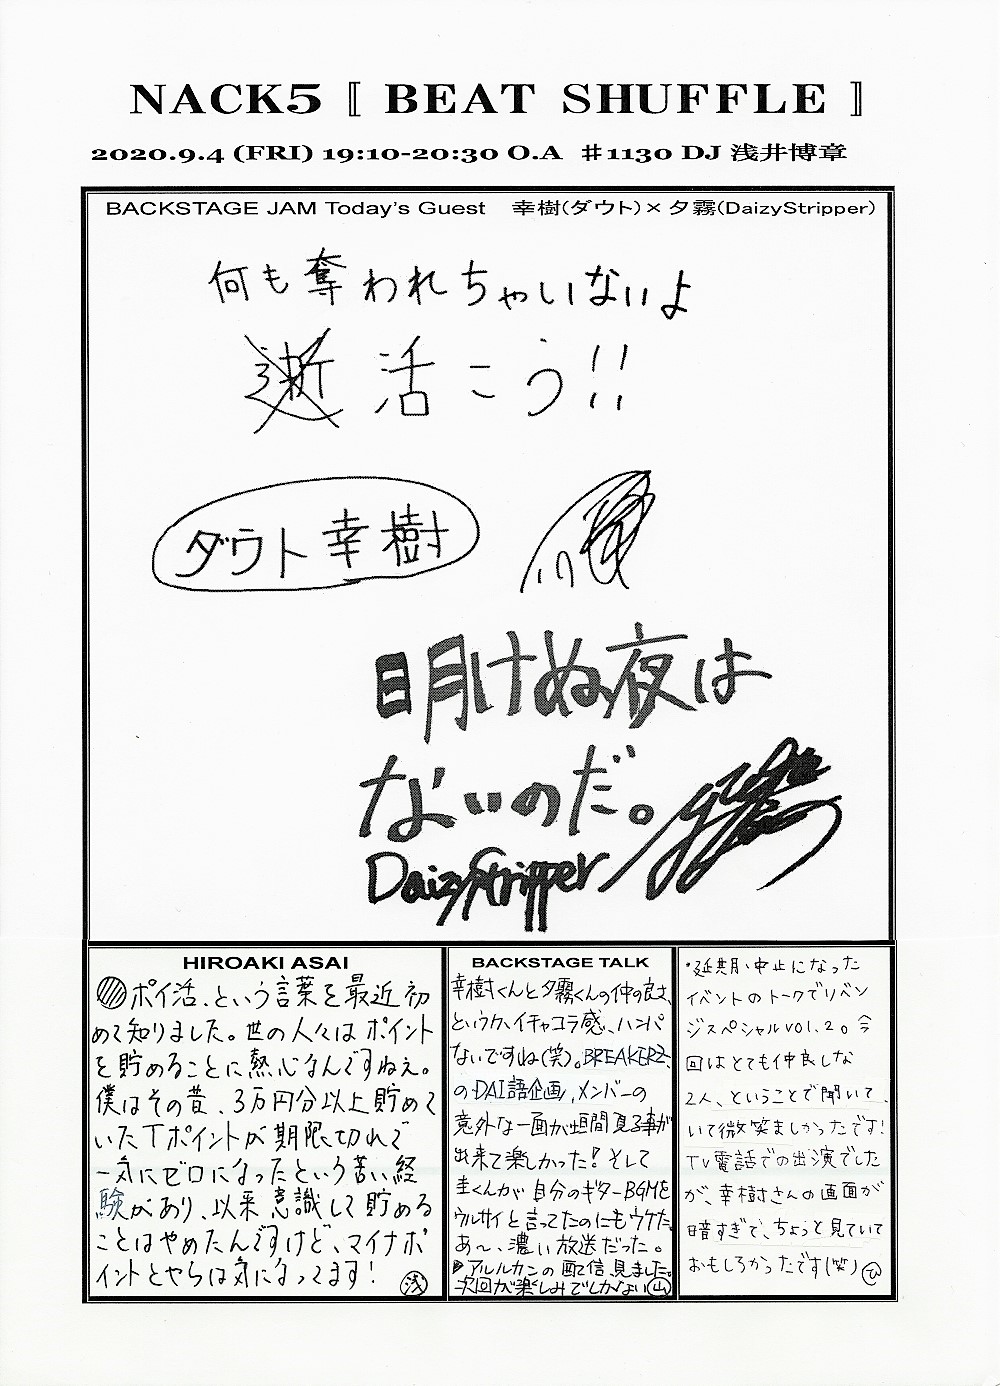 NACK5 〚 BEAT SHUFFLE 〛
2020.9.4 (FRI) 19:10-20:30 O.A #1130 DJ 浅井博章
BACKSTAGE JAM Today's Guest 幸樹(ダウト)×夕霧(DaizyStripper)
何も奪われちゃいないよ
活こう!!
ダウト 幸樹
明けぬ夜は
ないのだ。
DaizyStripper
HIROAKI ASAI
ポイ活、という言葉を最近初
めて知りました。世の人々はポイント
を貯めることに熱心なんですねぇ。
僕はその昔、3万円分以上貯めて
いたTポイントが期限切れで
一気にゼロになったという苦い経
験があり、以来意識して貯める
ことはやめたんですけど、マイナポ
イントとやらは気になってます!
浅
BACKSTAGE TALK
幸樹くんと夕霧くんの仲の良さ、
というか、イチャコラ感、ハンパ
ないですね(笑)。BREAKERZ、
のDAI語企画、メンバーの
意外な一面が垣間見る事が
出来て楽しかった!そして
圭くんが自分のギターBGMを
ウルサイと言ってたのにもウケた。
あ〜、濃い放送だった。
アルルカンの配信、見ました。
次回が楽しみでしかない 山
・延期、中止になった
イベントのトークでリベン
ジスペシャルVOl.2。今
回はとても仲良しな
2人、ということで聞いて、
いて微笑ましかったです!
TV電話での出演でした
が、幸樹さんの画面が
暗すぎで、ちょっと見ていて
おもしろかったです(笑) ひ